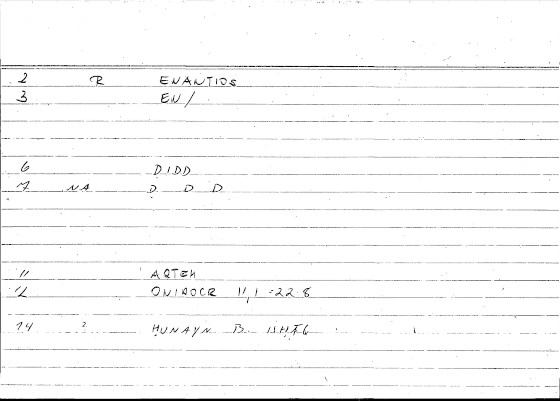 2 R ENANTIOS
3 EN/
6 DIDD
7 NA D D D
11 AQTEH
12 ONIROCR 11,1 -22.8
14 2 HUNAYN B. ISHAG